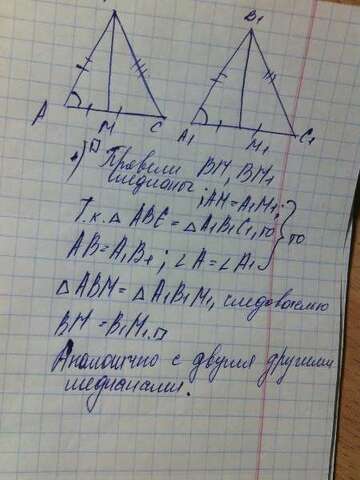 B1
A
M
C
A1
M1
C1
Провели BM, BM1
медианы ; AM = A1M1;
Т.к. △ ABC = △ A1B1C1, то
AB = A1B1; ∠A = ∠A1 } то
△ ABM = △ A1B1M1, следовательно
BM = B1M1.
Аналогично с двумя другими
медианами.